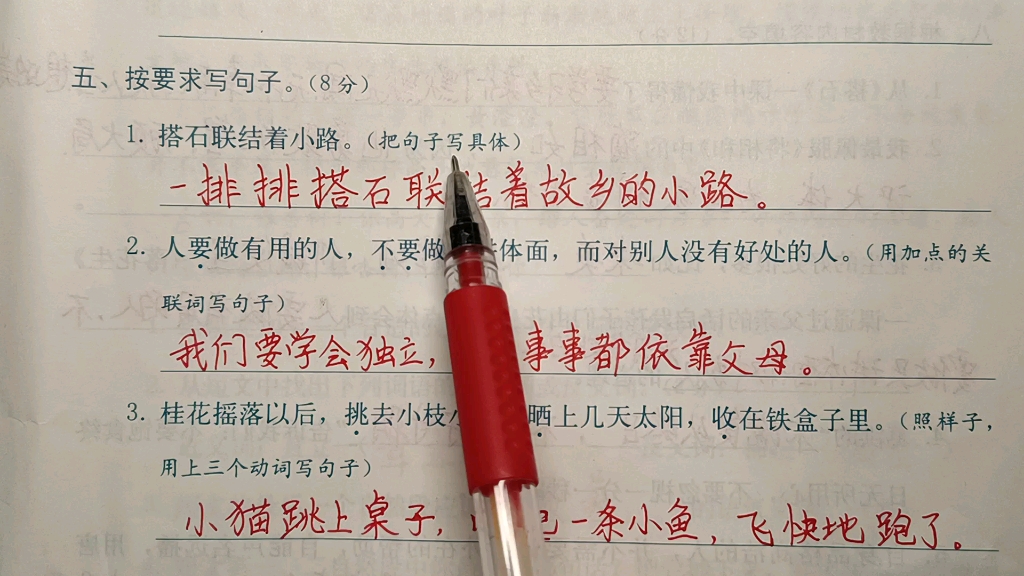 五、按要求写句子。(8分)
1. 搭石联结着小路。(把句子写具体)
一排排搭石联结着故乡的小路。
2. 人要做有用的人，不要做体面，而对别人没有好处的人。(用加点的关
联词写句子)
我们要学会独立，事事都依靠父母。
3. 桂花摇落以后，挑去小枝小晒上几天太阳，收在铁盒子里。(照样子，
用上三个动词写句子)
小猫跳上桌子，一条小鱼，飞快地跑了。